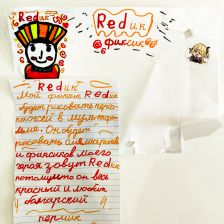 Redик
фиксик
Redик
Мой фиксик Redик
будет рисовать персо-
нажей в мультфи-
льме. Он будет
рисовать симкариков
и фиксиков моего
героя зовут Redик
потому что он весь
красный и любит
болгарский
перчик